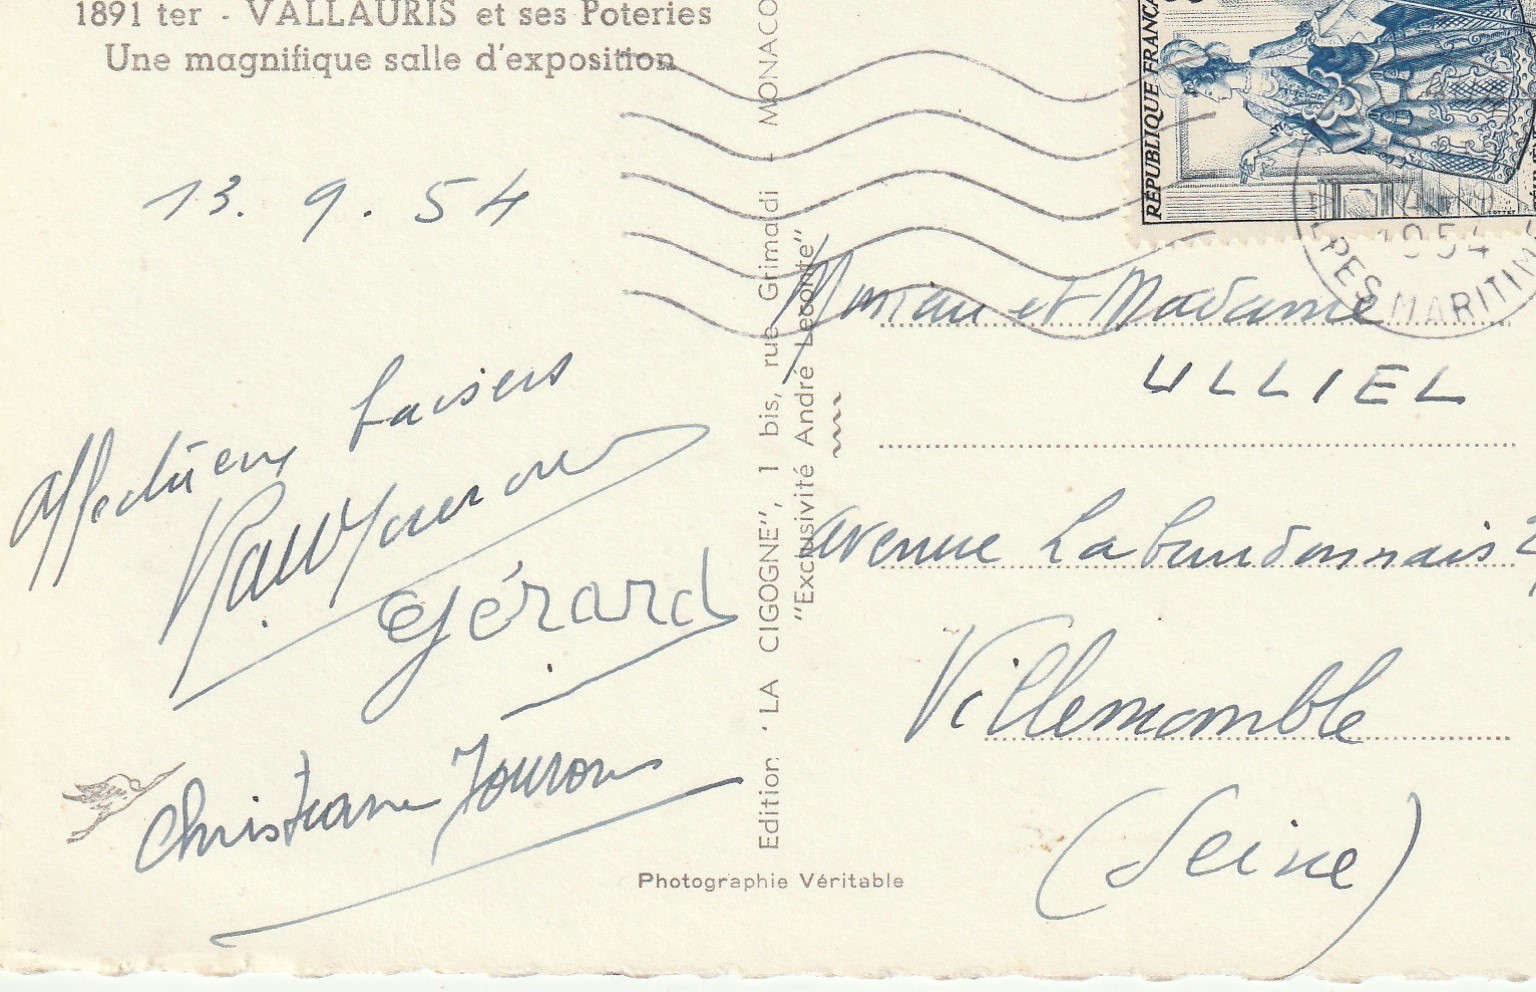 1891 ter - VALLAURIS et ses Poteries
Une magnifique salle d'exposition
13. 9. 54
Affectueux baisers
Gérard
Christiane
Photographie Véritable
Edition "LA CIGOGNE", 1 bis, rue Grimaldi - MONACO
"Exclusivité André Leconte"
RÉPUBLIQUE FRANÇA
1954
ALPES MARITIM
Monsieur et Madame
ULLIEL
avenue Labourdonnais
Villemomble
(Seine)